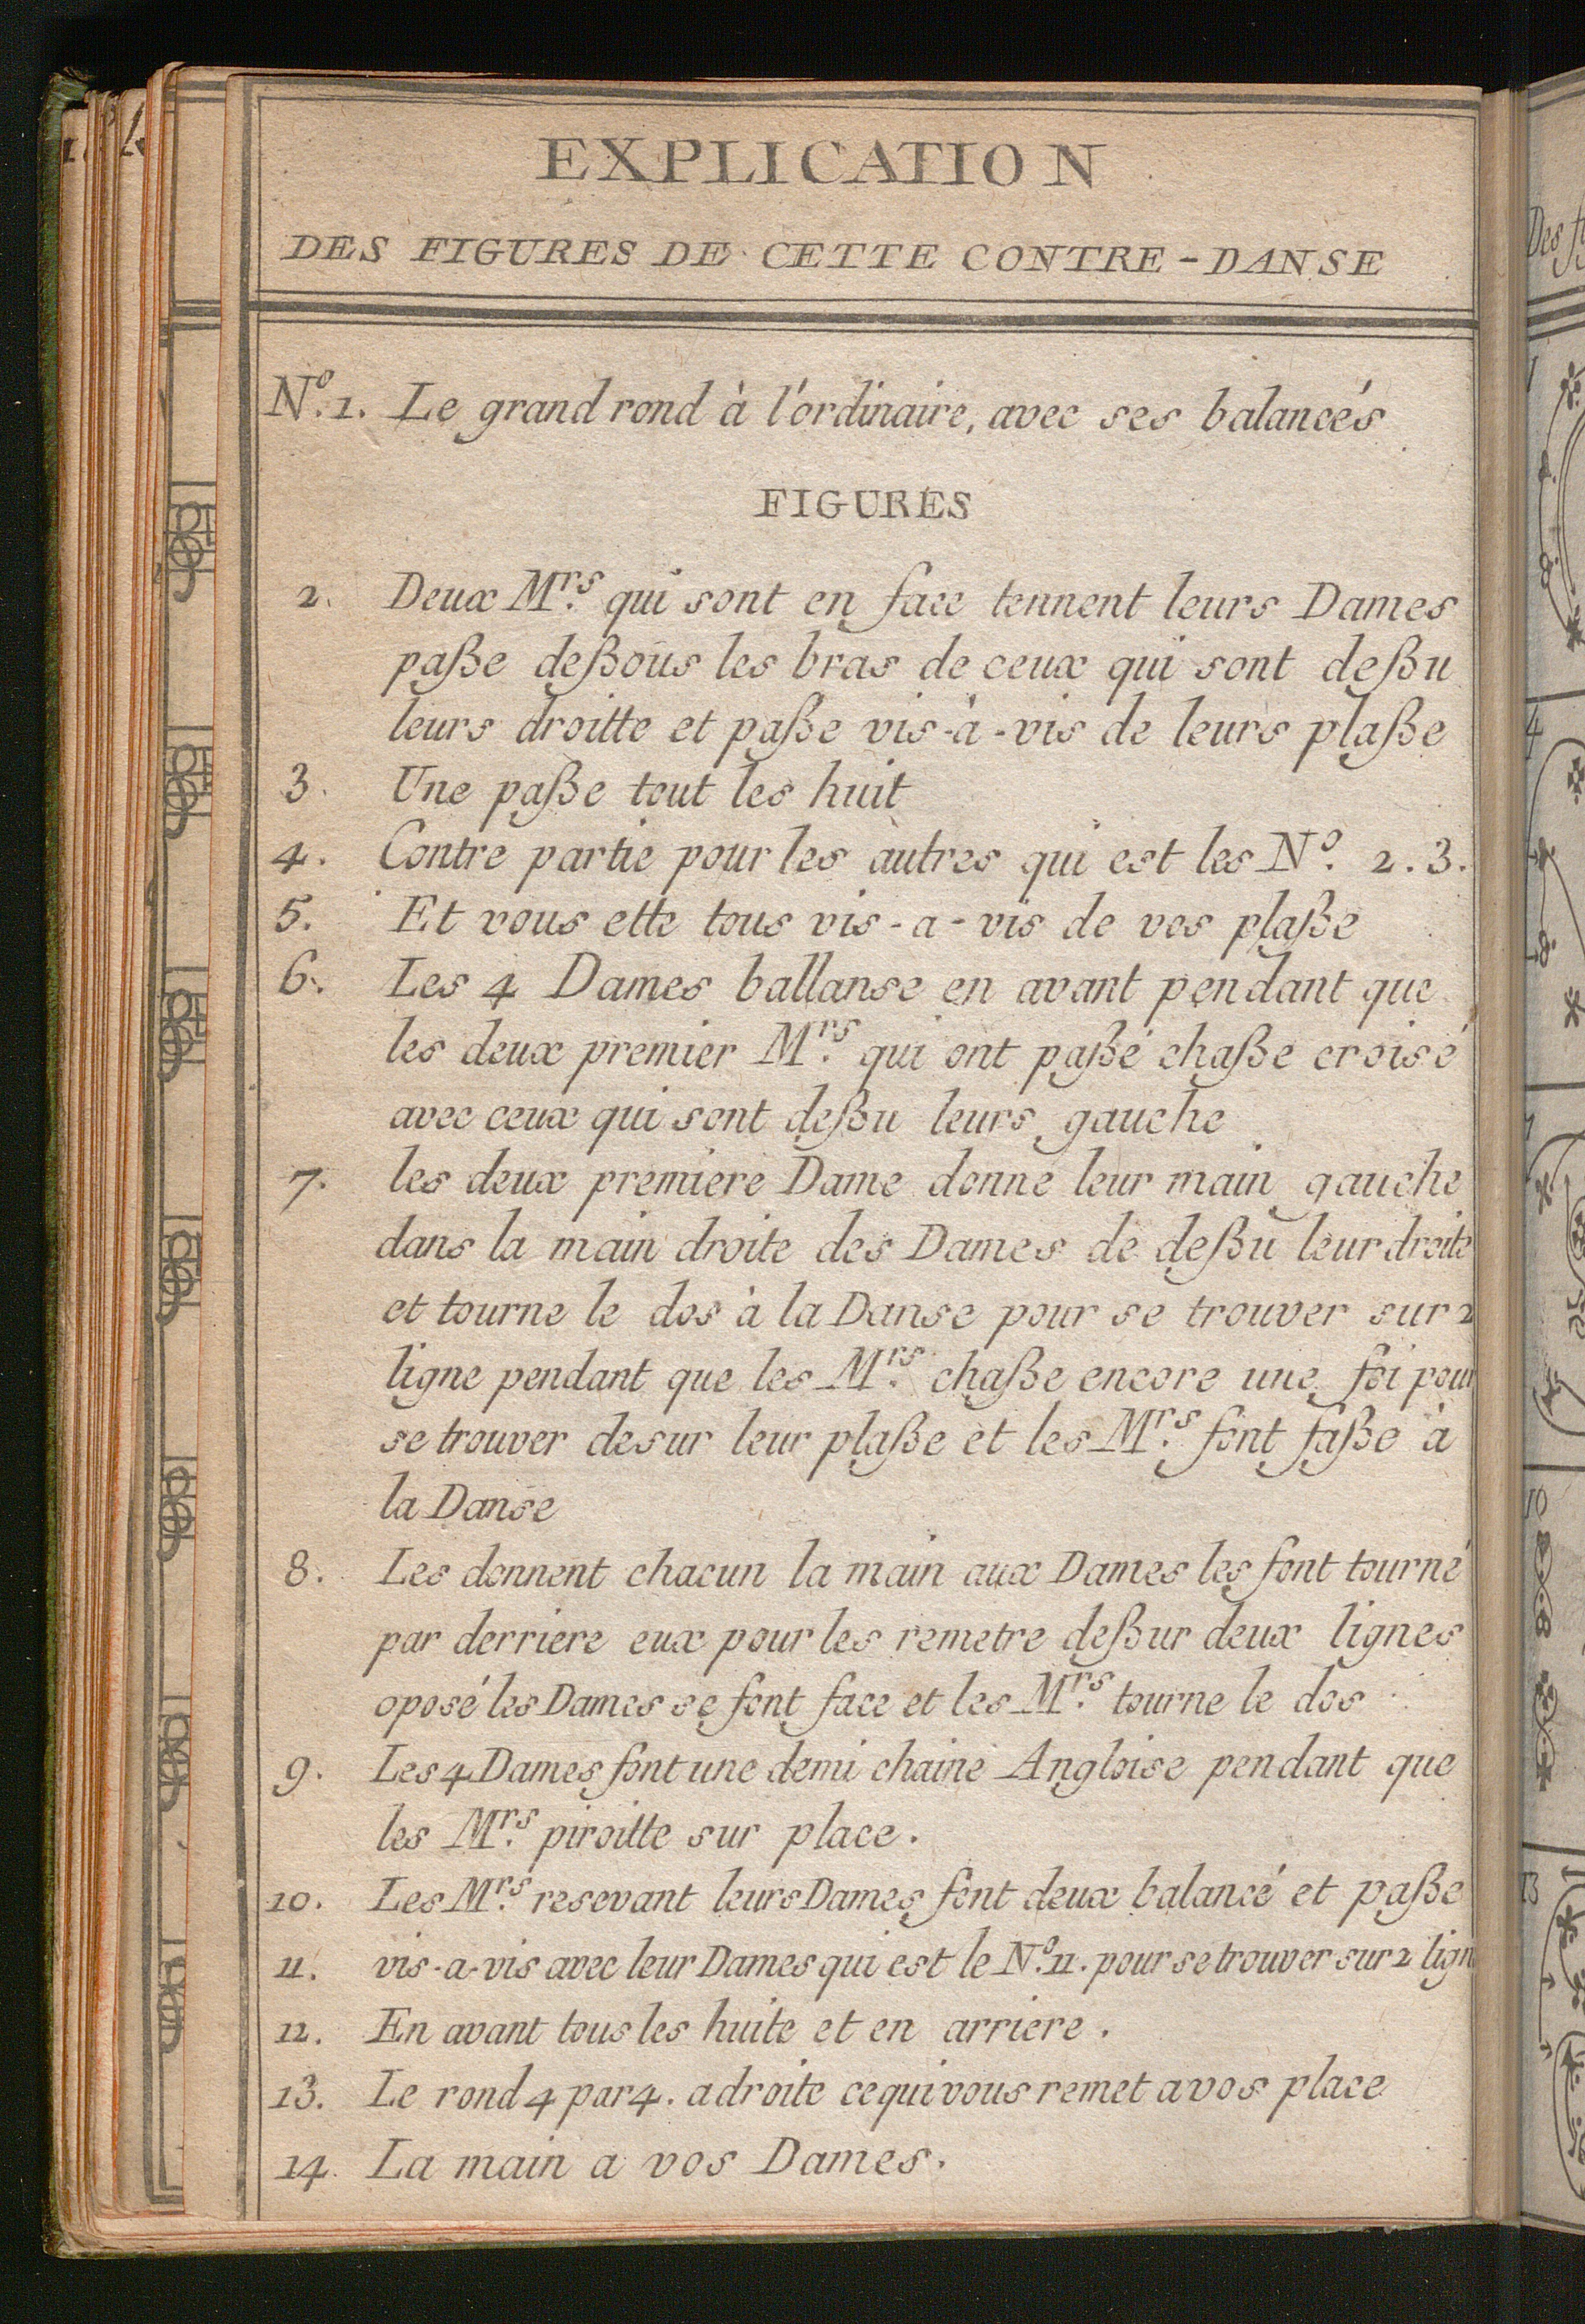 EXPLICATION
DES FIGURES DE CETTE CONTRE-DANSE
Nº. 1. Le grand rond à l'ordinaire, avec ses balancés
FIGURES
2. Deux Mrs. qui sont en face tennent leurs Dames
paße deßous les bras de ceux qui sont deßu
leurs droitte et paße vis-à-vis de leurs plaße
3. Une paße tout les huit
4. Contre partie pour les autres qui est les Nº. 2. 3.
5. Et vous ette tous vis-a-vis de vos plaße
6. Les 4 Dames ballanse en avant pendant que
les deux premier Mrs. qui ont paßé chaße croisé
avec ceux qui sont deßu leurs gauche
7. les deux premiere Dame donne leur main gauche
dans la main droite des Dames de deßu leur droite
et tourne le dos à la Danse pour se trouver sur 2
ligne pendant que les Mrs. chaße encore une foi pour
se trouver desur leur plaße et les Mrs. font faße à
la Danse
8. Les donnent chacun la main aux Dames les font tourné
par derriere eux pour les remetre deßur deux lignes
oposé les Dames se font face et les Mrs. tourne le dos
9. Les 4 Dames font une demi chaine Angloise pendant que
les Mrs. piroitte sur place.
10. Les Mrs. resevant leurs Dames font deux balancé et paße
11. vis-a-vis avec leur Dames qui est le Nº. 11. pour se trouver sur 2 lign
12. En avant tous les huite et en arriere.
13. Le rond 4 par 4. a droite ce qui vous remet a vos place
14. La main a vos Dames.
Des
4
10
13